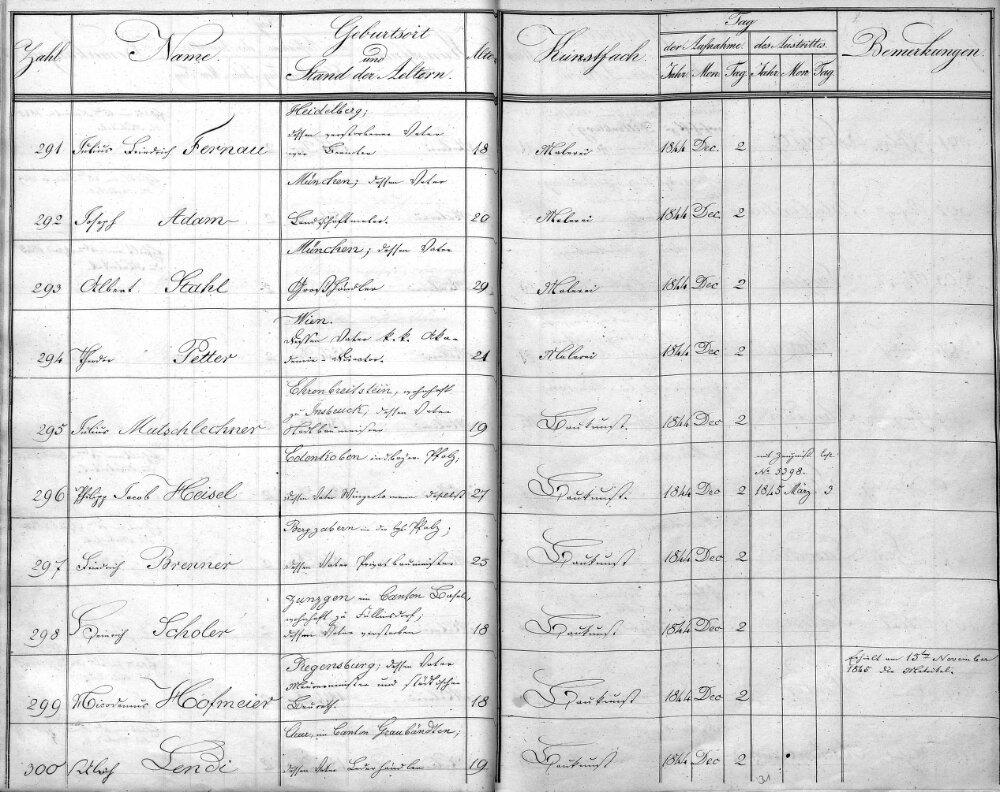 Zahl. Name. Geburtsort und Stand der Aeltern. Alter Kunstfach. Tag der Aufnahme. des Austrittes. Bemerkungen.
Jahr Mon. Tag Jahr Mon. Tag.
Heidelberg;
dessen verstorbener Vater
291 Julius Friedrich Fernau Beamter 18 Malerei 1844 Dec. 2
München; dessen Vater
292 Joseph Adam Landschaftmaler. 20 Malerei 1844 Dec. 2
München; dessen Vater
293 Albert Stahl Großhändler 29 Malerei 1844 Dec 2
Wien.
dessen Vater k. k. Aka-
294 Theodor Petter demie-Kurator. 21 Malerei 1844 Dec 2
Ehrenbreitstein, wohnhaft
zu Insbruck, dessen Vater
295 Julius Mutschlechner Stadtbaumeister 19 Baukunst. 1844 Dec 2
Edenkoben in d. bayer. Pfalz; mit Zeugniß
No. 5398.
296 Philipp Jacob Heisel dessen Vater daselbst 27 Baukunst. 1844 Dec 2 1845 März 3
Bergzabern in der Pfalz;
297 Friedrich Brenner dessen Vater 25 Baukunst 1844 Dec 2
Zunzgen im Canton Basel,
wohnhaft zu Füllinsdorf;
298 Heinrich Scholer dessen Vater verstorben 18 Baukunst 1844 Dec 2
Regensburg; dessen Vater Erhält am 15ten November
Maurermeister und städtischer 1845 die Matrikel.
299 Nicodemus Hofmeier Baurath. 18 Baukunst 1844 Dec 2
Chur, im Canton Graubündten;
300 Ulrich Lendi dessen Vater Lederhändler 19. Baukunst 1844 Dec 2
31